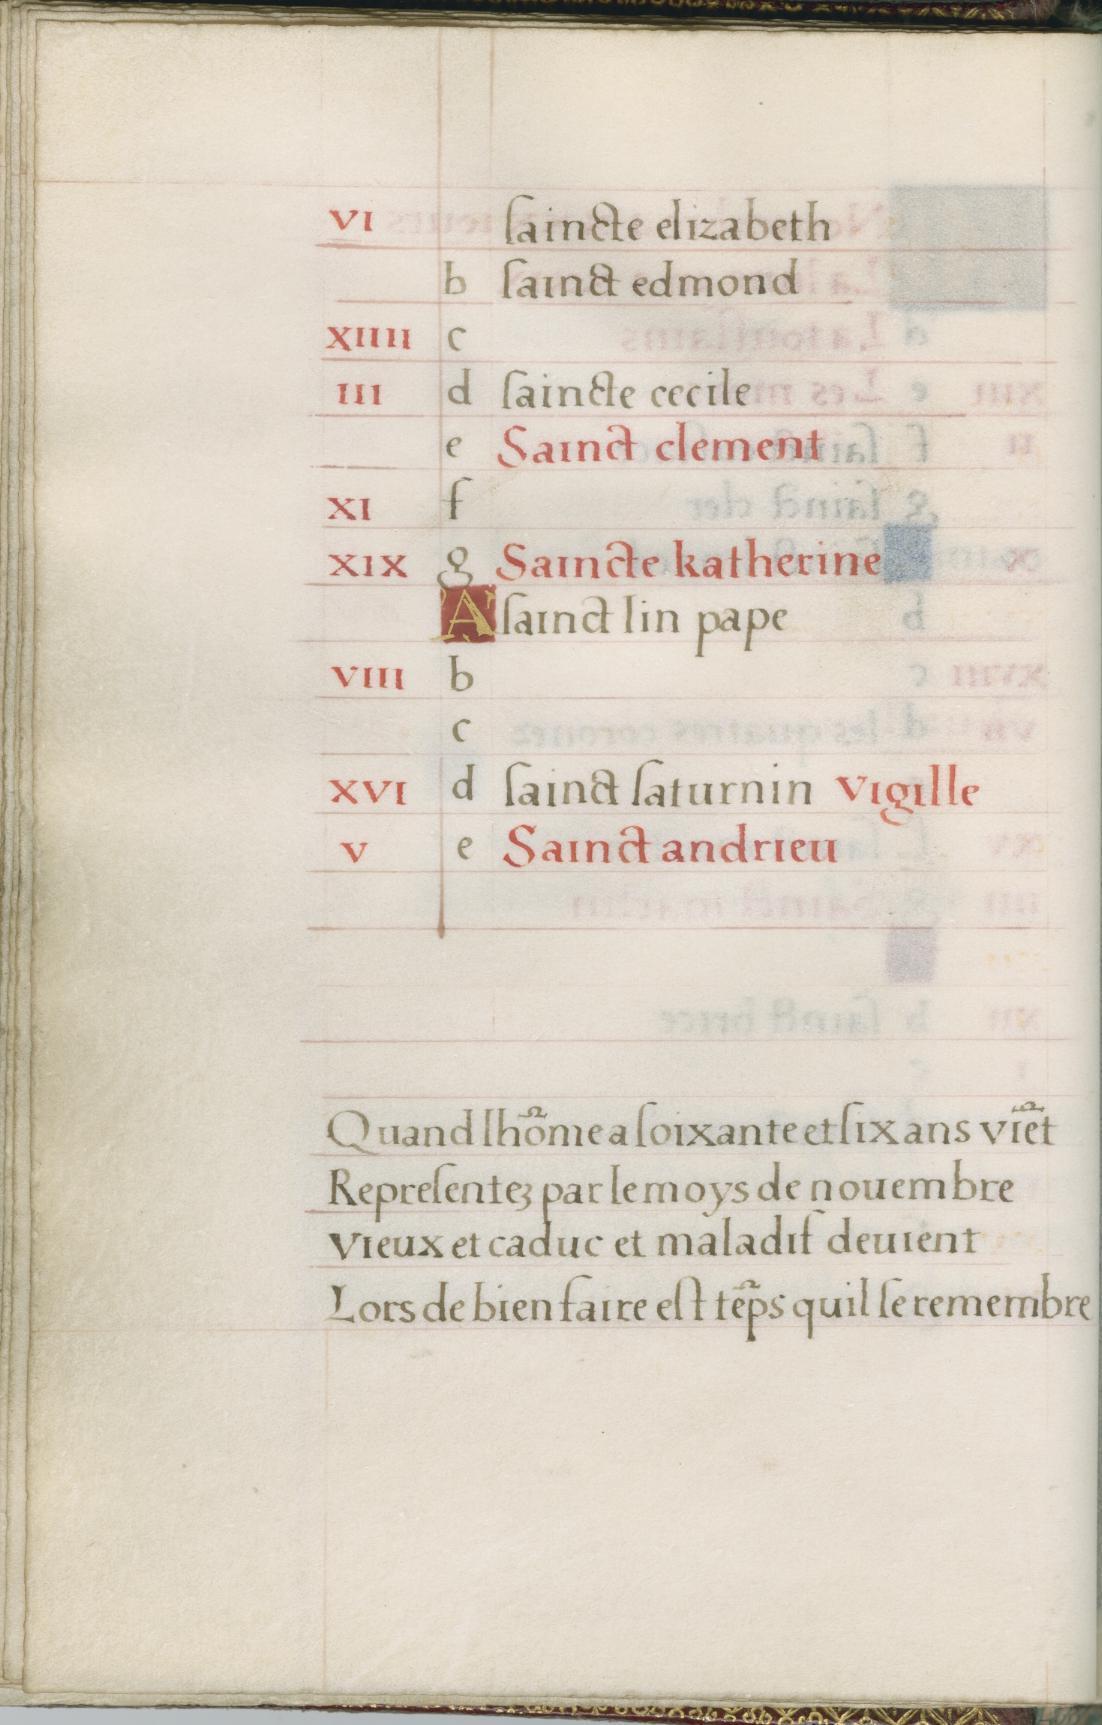 VI saincte elizabeth
b sainct edmond
XIIII c
III d saincte cecile
e Sainct clement
XI f
XIX g Saincte katherine
A sainct lin pape
VIII b
c
XVI d sainct saturnin vigille
V e Sainct andrieu
Quand lhõme a soixante et six ans viẽt
Representez par le moys de nouembre
Vieux et caduc et maladif deuient
Lors de bien faire est tẽps quil se remembre